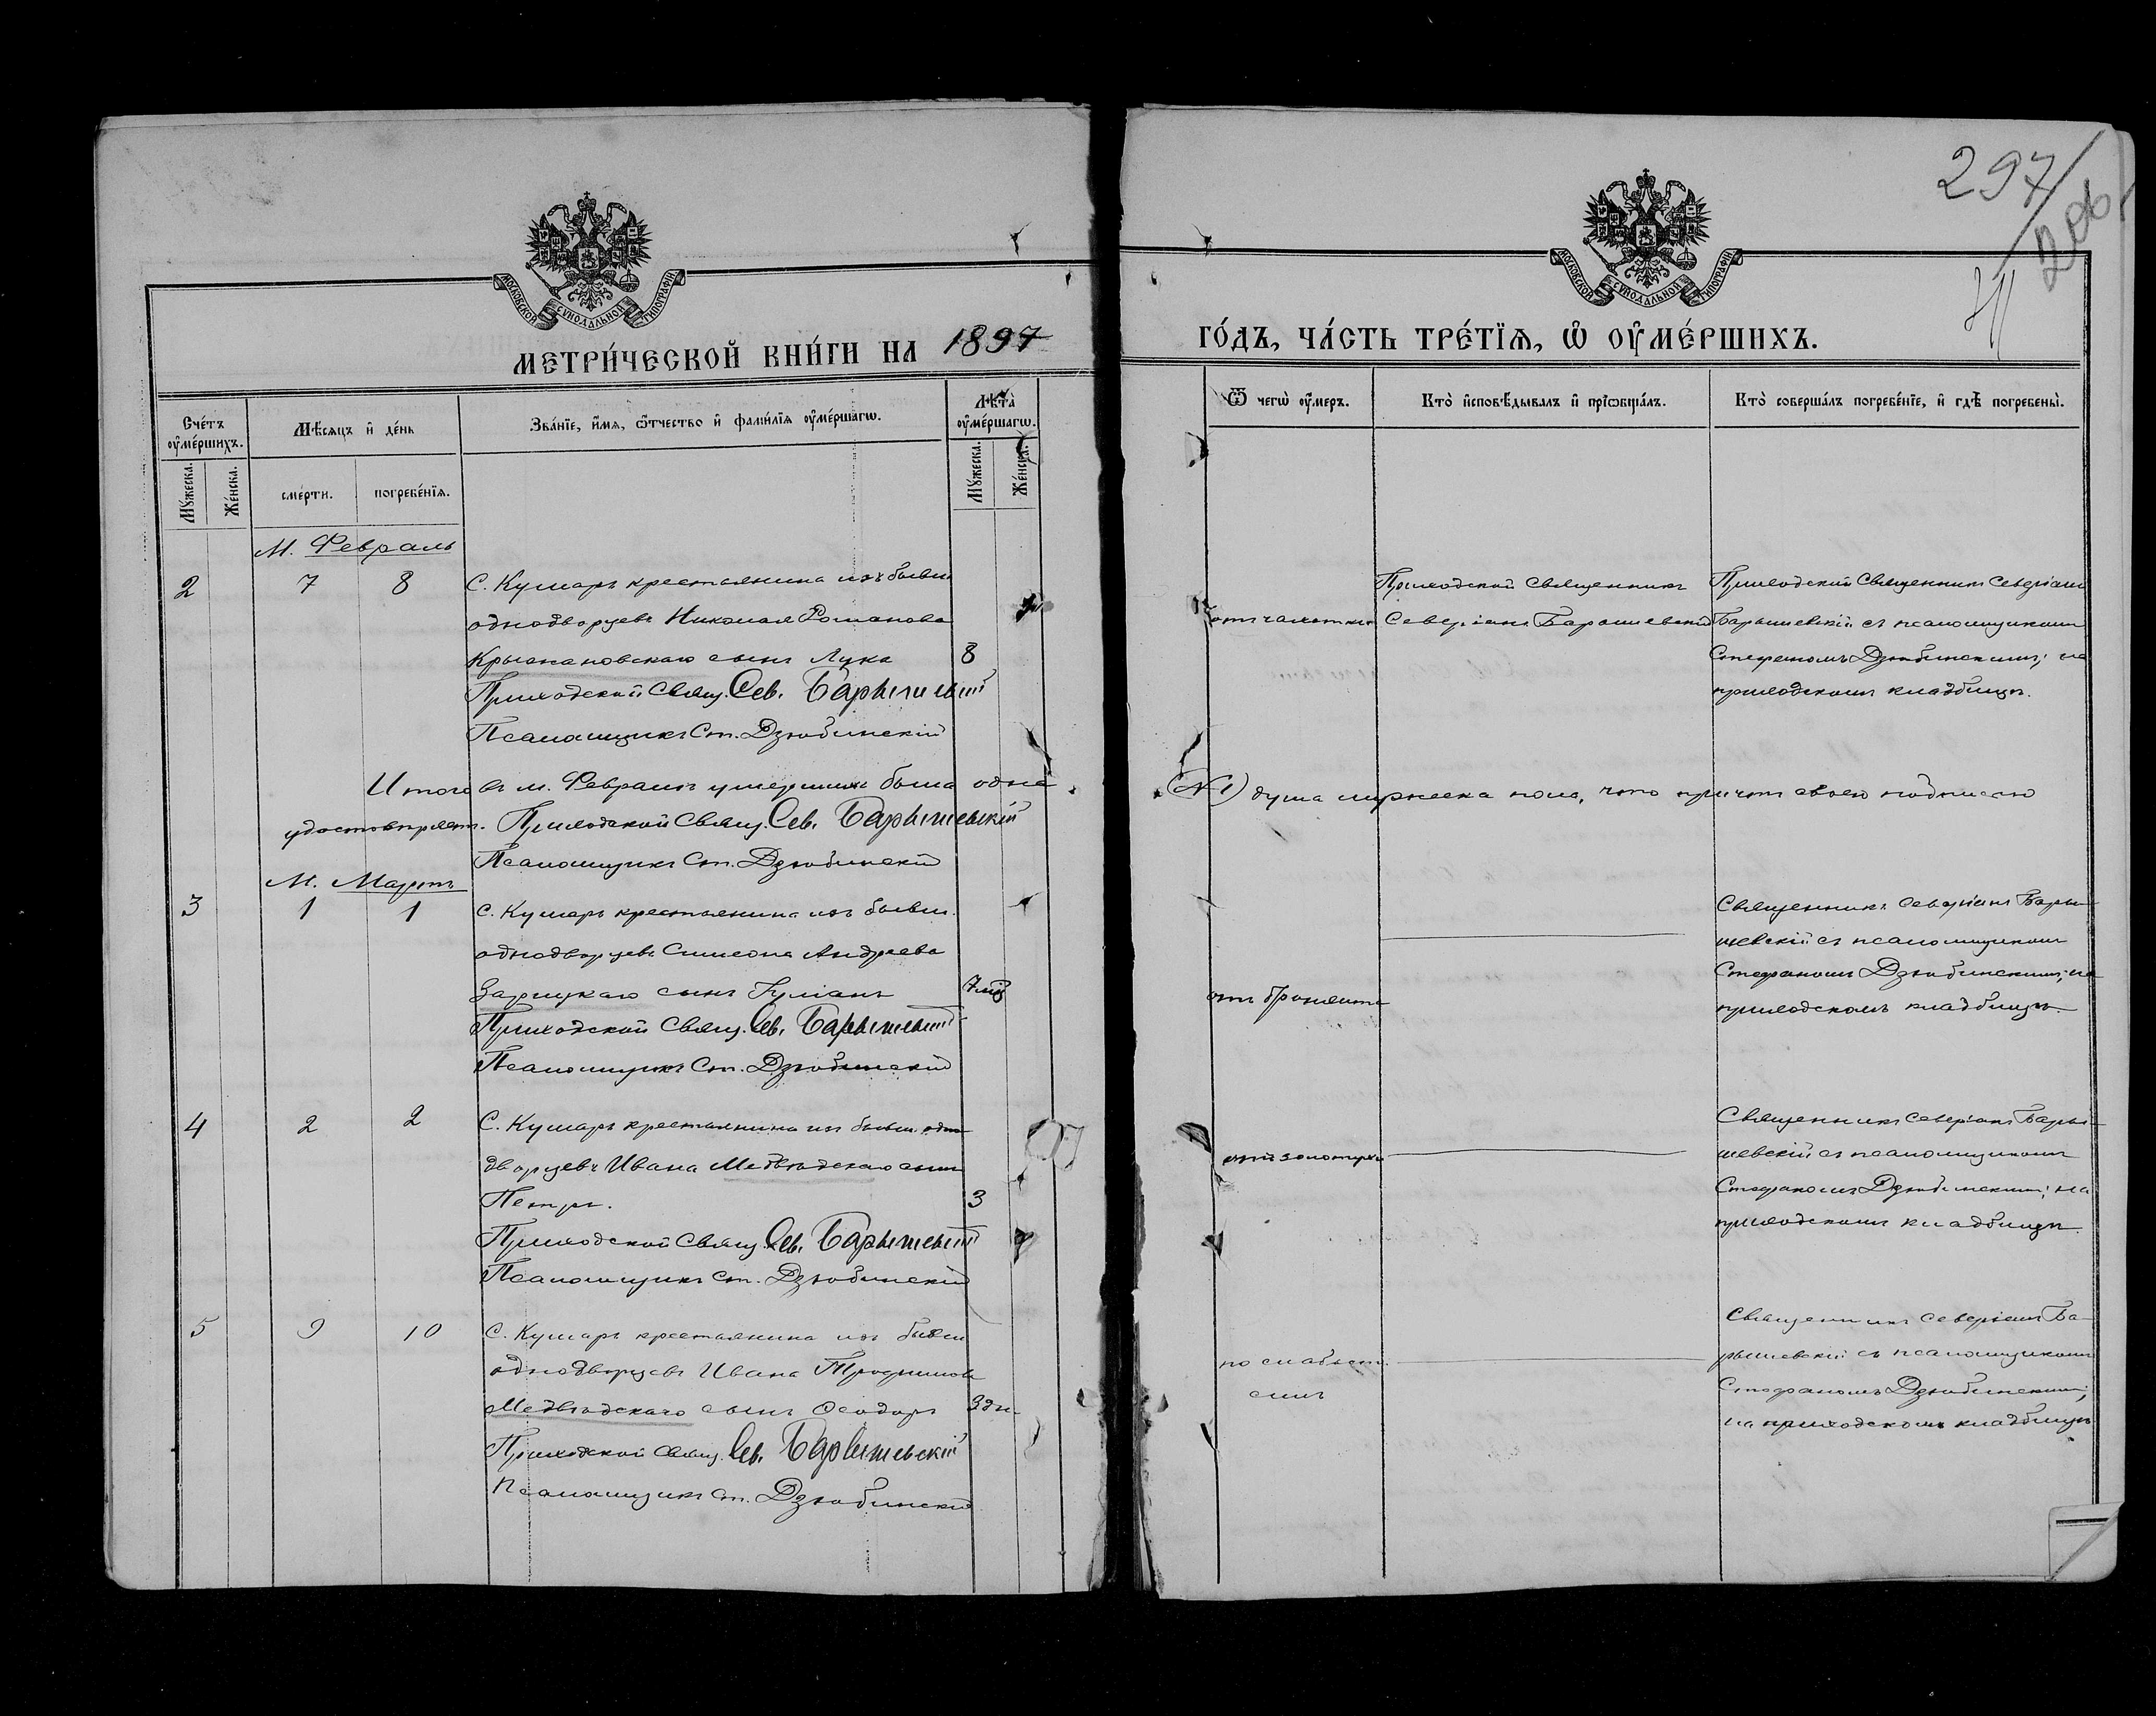 297
МОСКОВСКОЙ СѴНОДАЛЬНОЙ ТИПОГРАФІИ
МОСКОВСКОЙ СѴНОДАЛЬНОЙ ТИПОГРАФІИ
МЕТРИ́ЧЕСКОЙ КНИ́ГИ НА 1897
ГО́ДЪ, ЧА́СТЬ ТРЕ́ТЇѦ, Ѽ ОУ҆МЕ́РШИХЪ.
Сче́тъ оу҆ме́ршихъ.
Мꙋ́жеска.
Же́нска.
Мѣ́сяцъ и҆ де́нь
сме́рти.
погребе́нїѧ.
Зва́нїе, и҆́мѧ, ѻ҆́тчество и҆ фами́лїѧ оу҆ме́ршагѡ.
Лѣ́та̀ оу҆ме́ршагѡ.
Мꙋ́жеска.
Же́нска.
Ѿ чегѡ̀ оу҆́меръ.
Кто̀ и҆сповѣ́дывалъ и҆ прїѡбща́лъ.
Кто̀ соверша́лъ погребе́нїе, и҆ гдѣ̀ погребены̀.
М. Февраль
2 7 8 С. Кушаръ крестьянина изъ бывш.
однодворцевъ Николая Романова
Крыжановскаго сынъ Лука 8
Приходской Свящ. Сев. Барышевскій
Псаломщикъ Ст. Дзюбинскій
отъ чахотки
Приходской священникъ
Северіанъ Барышевскій
Приходскій Священникъ Северіанъ
Барышевскій съ псаломщикомъ
Стефаномъ Дзюбинскимъ; на
приходскомъ кладбищѣ.
Итого въ м. Февралѣ умершихъ была одна
(№1) душа мужеска пола, что причтъ своею подписью
удостовѣряетъ. Приходской Свящ. Сев. Барышевскій
Псаломщикъ Ст. Дзюбинскій
М. Мартъ
3 1 1 С. Кушаръ крестьянина изъ бывш.
однодворцевъ Симеона Андреева
Зарицкаго сынъ Іуліанъ 7 мѣ
Приходской Свящ. Сев. Барышевскій
Псаломщикъ Ст. Дзюбинскій
отъ бронхита
Священникъ Северіанъ Бары-
шевскій съ псаломщикомъ
Стефаномъ Дзюбинскимъ; на
приходскомъ кладбищѣ.
4 2 2 С. Кушаръ крестьянина изъ бывш. одно
дворцевъ Ивана Медвѣдскаго сынъ
Петръ. 3
Приходской Свящ. Сев. Барышевскій
Псаломщикъ Ст. Дзюбинскій
отъ золотухи
Священникъ Северіанъ Бары-
шевскій съ псаломщикомъ
Стефаномъ Дзюбинскимъ; на
приходскомъ кладбищѣ.
5 9 10 С. Кушаръ крестьянина изъ бывш
однодворцевъ Ивана Трофимова
Медвѣдскаго сынъ Ѳеодоръ 3 дн.
Приходской Свящ. Сев. Барышевскій
Псаломщикъ Ст. Дзюбинскій
по слабост.
силъ
Священникъ Северіанъ Ба-
рышевскій съ псаломщикомъ
Стефаномъ Дзюбинскимъ;
на приходскомъ кладбищѣ